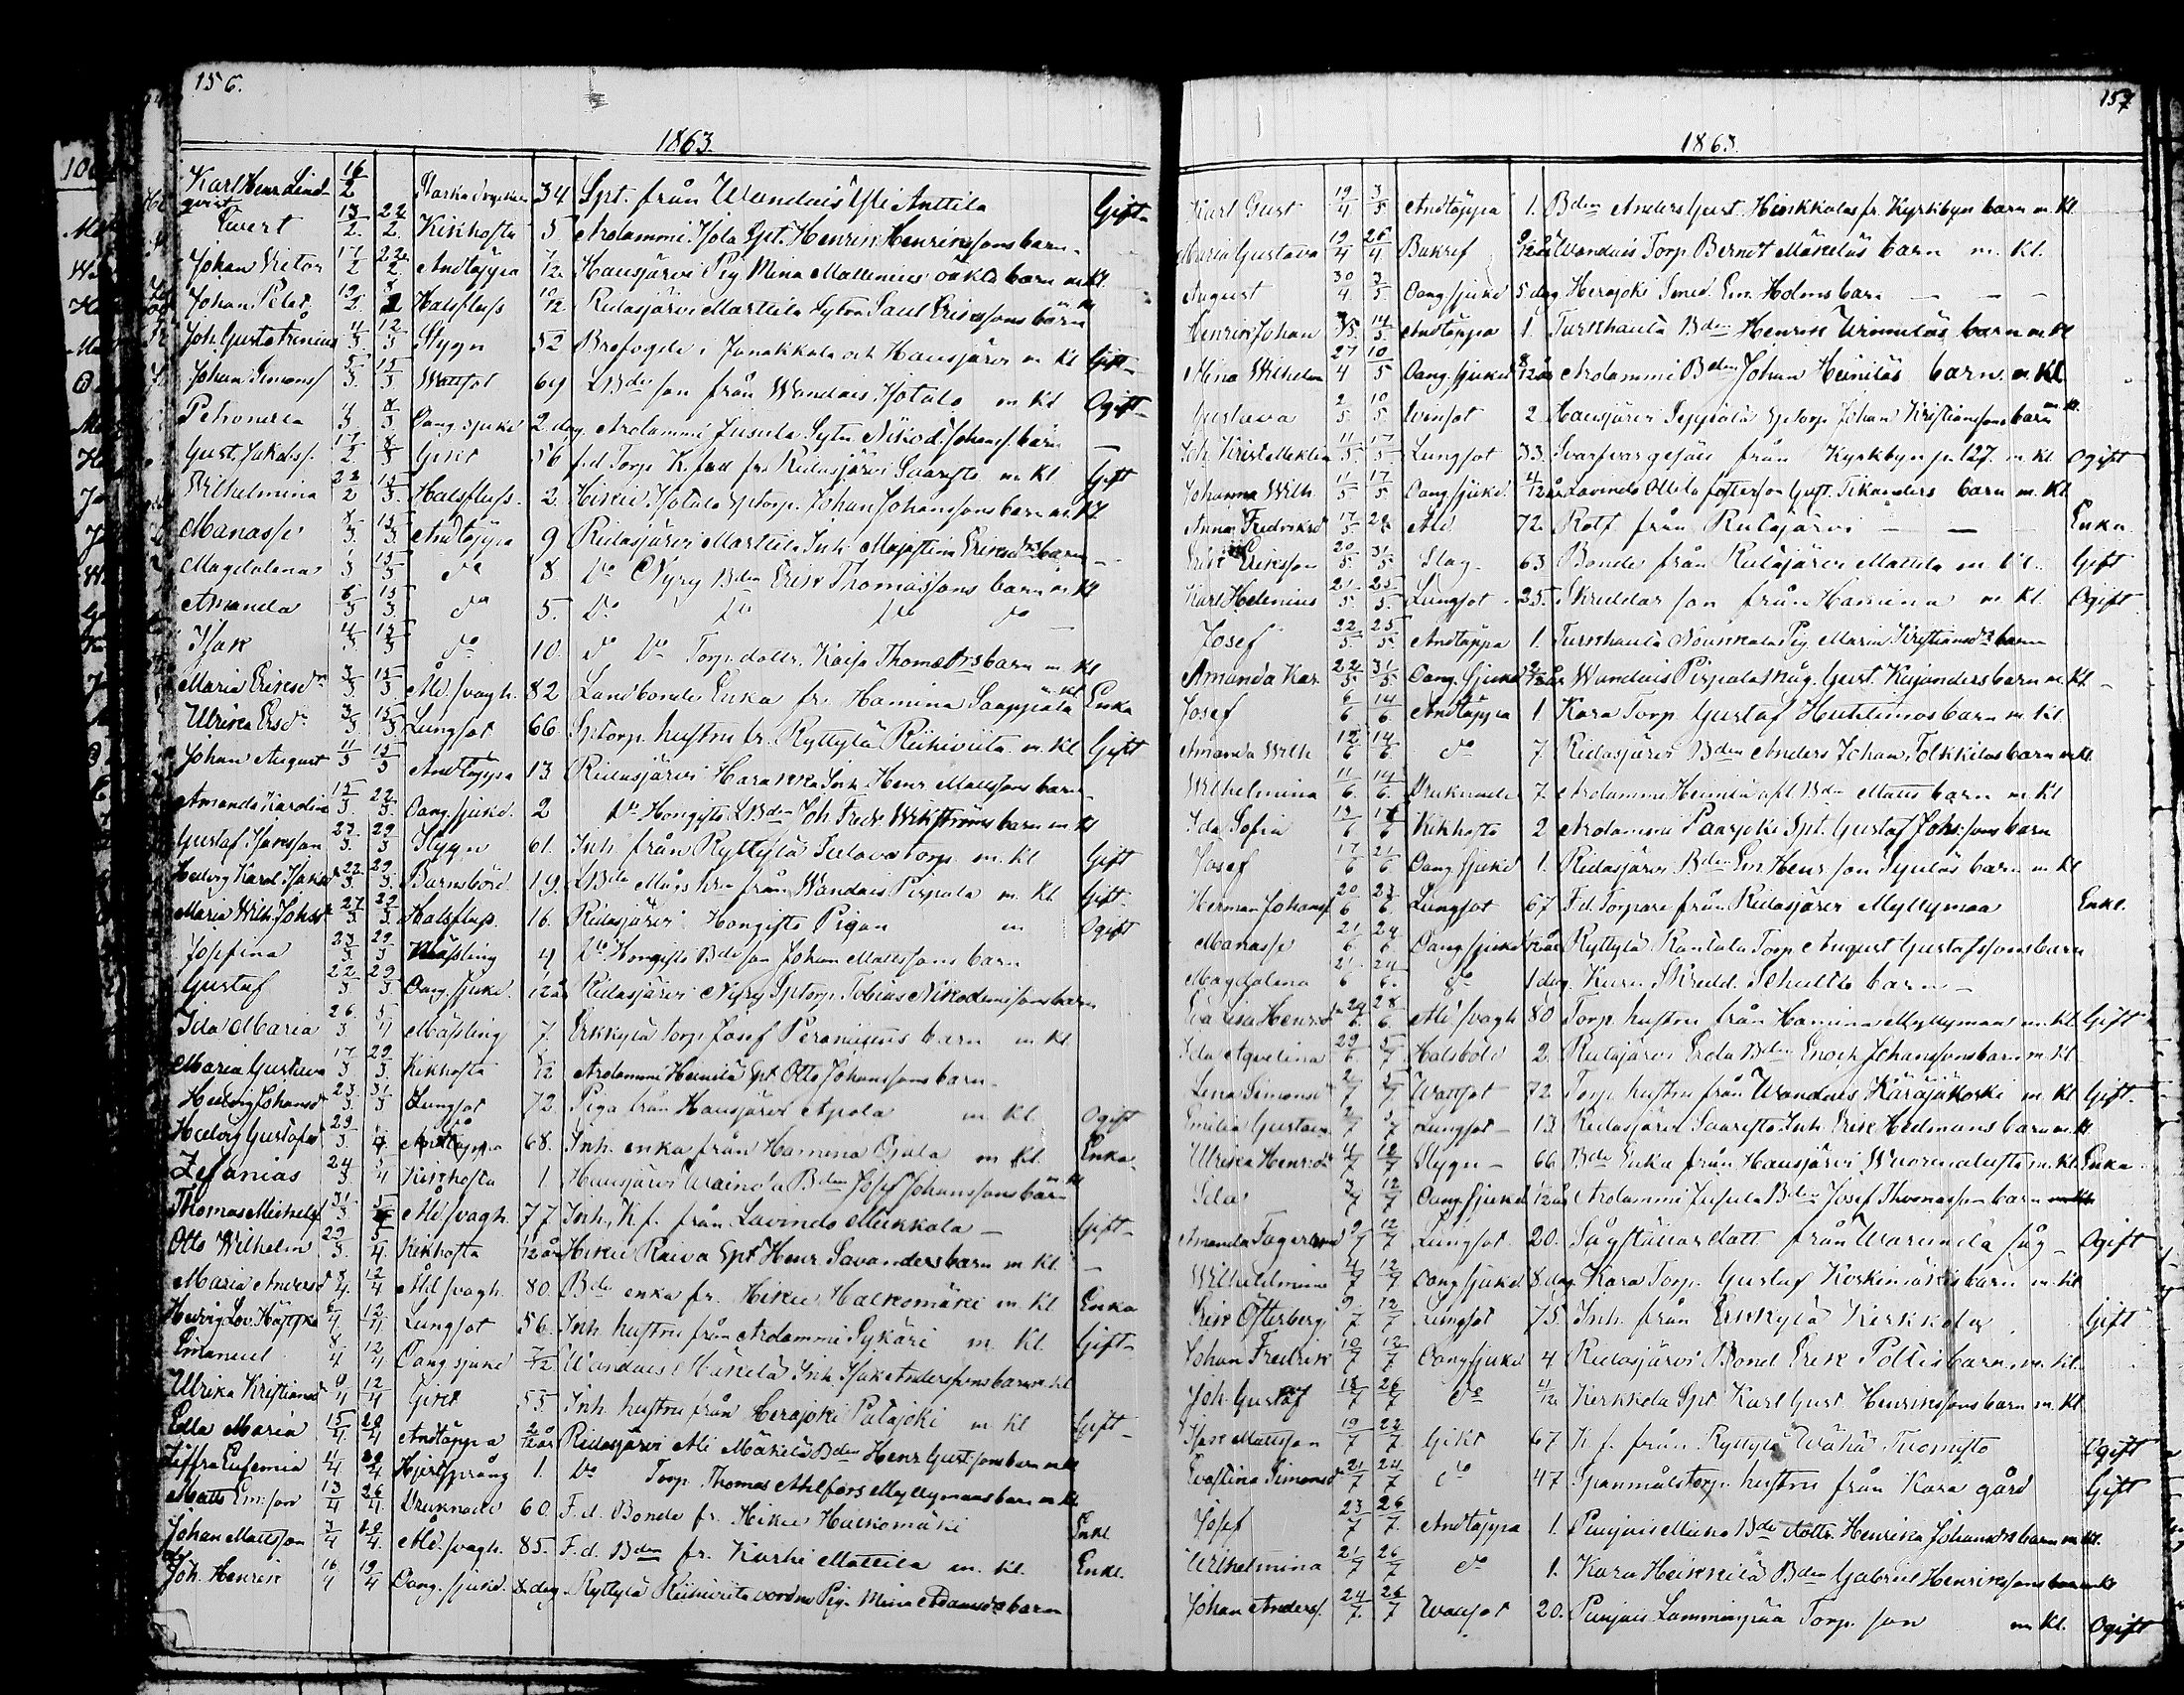 156.
1863.
Karl Henr. Lindqvist 16/2 Starka drycker 34 Spt. från Wandais Yli Anttila Gift
Evert 13/2. 22/2. Kikhosta 5 Ardammi Isola Spt. Henrik Henrikssons barn
Johan Victor 17/2 22/2. Andtäppa 7/12 Hausjärvi Pig Mina Mattsdotters oäkta barn m Kl.
Johan Peter 19/2 Halsfluss 10/12 Ridasjärvi Marttila Sytn Paul Erikssons barn m Kl
Joh. Gust. 4/3. 12/3 Stygn 52 Brofogde i Janakkala och Hausjärvi m Kl Gift
Johan Simons/ 5/3. 15/3 Wattsot 69 LBde son från Wandais Hotala m Kl Ogift
Petronella 4/3 8/3 Oang. sjukd 2 dag Ardammi Jusula Sytn Nikod. Johans/ barn
Gust. Jakobs/. 17/2 8/3 Gikt 56 f.d Torp. K. fr. Ridasjärvi Saaristo m Kl Gift
Wilhelmina 22/2 15/3. Halsfluss. 2. Hikiä Hotala Sptorp. Johan Johanssons barn m. Kl
Manasse 8/3. 15/3. Andtäppa 9 Ridasjärvi Marttila Inh. Majastina Eriksdrs barn
Magdalena 1/3 15/3 do 8 Do Nyry Bden Erik Thomassons barn m Kl
Amanda 6/3 15/3 do 5. Do Do Do Do
Isak 4/3 15/3 do 10. Do Do Torp.dottr. Kaisa Thomædrs barn m. Kl
Maria Eriksdr 3/3. 15/3. Ål. svagh. 82 Landbonde Enka fr. Hamina Saappala m. Kl. Enka
Ulrika Ersdr 3/3 15/3 Lungsot 66. Sptorp. hustru fr. Ryttylä Riihiviita m. Kl Gift
Johan August 11/3 15/3 Andtäppa 13 Ridasjärvi Harakka Inh. Henr. Mattssons barn
Amanda Karolina 15/3. 22/3. Oang. sjukd. 2 Do Hongisto LBden Joh. Fredr. Wikströms barn m Kl
Gustaf Isaksson 23/3. 29/3 Stygn 61. Inh. från Ryttylä torp. m. Kl Gift
Hedvig Karol. Isaksdr 22/3. 29/3. Barnsbörd. 19. LBde Mågs hru från Wandais Pirpala m. Kl Gift
Maria Wilh. Johsdr 27/3. 29/3. Halsfluss. 16. Ridasjärvi Hongisto Pigan m Ogift
Josefina 23/3 29/3 Mässling 4 Do Hongisto Bde son Johan Mattssons barn
Gustaf 22/3 29/3 Oang. sjukd. Ridasjärvi Nyry Sptorp. Tobias Nikodemisons barn
Ida Maria 26/3 5/4 Mässling 7. Erkkylä torp. Josef barn m Kl
Maria Gustava 17/3 29/3. Kikhosta 8/12 Ardammi Heinilä Spt Otto Johanssons barn
Hedvig Johansdr 23/3. 31/3 Lungsot 72. Piga från Hausjärvi m. Kl. Ogift
Hedvig Gustafsdr 29/3. Andtäppa 68. Inh. enka från Hamina Ojala m Kl. Enka
Zefanias 24/3. 5/4 Kikhosta 1. Hausjärvi Wainola Bden Josef Johanssons barn m Kl
Thomas Michels/ 31/3 5/4 Ål. svagh. 77 Inh. K. f. från Lavindo Mikkala Gift
Otto Wilhelm 29/3. 5/4. Kikhosta Hikiä Raiva Spt Henr. Savanders barn m Kl.
Maria Andersdr 8/4. 12/4 Åld. svagh. 80. Bde enka fr. Hikiä Halkomäki m. Kl. Enka
Hedvig Lov. 6/4 12/4 Lungsot 56. Inh. hustru från Ardammi Sykäri m. Kl. Gift
Emanuel 8/4 12/4 Oang sjukd 7/12 Wandais Mäkelä Inh. Isak Anderssons barn m. Kl
Ulrika Kristiansdr 9/4 12/4 Gikt 55 Inh. hustru från Herajoki Palajoki m Kl Gift
Edla Maria 15/4. 20/4 Andtäppa 2/12 år Ridasjärvi Ali Mäkelä Bden Henr. Gust.sons barn m Kl
Eufemia 14/4 20/4 Hjertsprång 1. Do Torp. Thomas Ahlfors Myllymaas barn m Kl
Matts Em:son 13/4 26/4. Drunknade 60. F.d. Bonde fr. Hikiä Halkomäki Enkl
Johan Mattsson 7/4 20/4. Åld. svagh. 85. F.d. Bden fr. Karhi Mattila m. Kl. Enkl.
Joh. Henrik 16/4 19/4 Oang. sjukd. 8 dag Ryttylä Riihiviita Pig. Mina Adamsdrs barn
157
1863.
Karl Gust 19/4 3/5 Andtäppa 1. Bden Anders Gust. Hinkkalas fr. Kyrkbyn barn m. Kl.
Maria Gustava 19/4 26/4 9/12 år Wandais Torp. Bernat Mäkeläs barn m. Kl.
August 30/4. 3/5. Oang sjukd 5. dag Herajoki Smed. Em. Holms barn
Henrik Johan 14/5. Andtäppa 1. Turkhauta Bden Henrik barn m Kl
Mina Wilhelm 27/4 10/5 Oang. sjukd 8/12 år Ardammi Bden Johan Heiniläs barn. m. Kl.
Gustava 2/5 10/5. 2 Hausjärvi Seppälä Sptorp. Johan Kristianssons barn m. Kl.
Joh. Krist. 11/5. 17/5. Lungsot 33. Svarfvargesäll från Kyrkbyn p. 127. m. Kl Ogift
Johanna Wilh. 11/5 17/5 Oang sjukd. 4/12 år Lavindo Ollila fosterson Gust. Tikanders barn m. Kl
Anna Fredriksdr 17/5 Åld 72. Rotf. från Ridasjärvi Enka
Erik Eriksson 20/5 31/5 Slag 63 Bonde från Ridasjärvi Mattila m. Kl. Gift
Karl Helenius 21/5. 25/5. Lungsot 25. Skräddar son från Hamina m. Kl. Ogift
Josef 22/5. 25/5. Andtäppa 1. Turkhauta Nounkala Pig. Maria Kristiansdrs barn
Amanda Kar. 22/5 31/5 Oang. sjukd Wandais Pirpala Måg. Gust. Kajanders barn m. Kl.
Josef 6/6 14/6. Andtäppa 1. Kara Torp. Gustaf Huhtimos barn m. Kl.
Amanda Wilh 12/6 14/6. do 7. Ridasjärvi Bden Anders Johan Tolkkilas barn m. Kl.
Wilhelmina 11/6. 14/6. Drunknade 7. Ardammi Heinilä afl. Bden Matts barn m. Kl
Ida Sofia 13/6 14/6 Kikhosta 2 Ardammi Paarjoki Spt. Gustaf Johssons barn
Josef 17/6 21/6 Oang sjukd 1. Ridasjärvi Bden Em. Henr.son m Kl
Herman Johans/ 20/6 23/6. Lungsot 67 F.d. Torpare från Ridasjärvi Myllymaa Enkl.
Manasse 21/6 24/6 Oang sjukd Ryttylä Rantala Torp. August Gustafssons barn
Magdalena 21/6 24/6. do 1 dag. Kuru Skrädd. Schultz barn
Eva Lisa Henrsdr 24/6. 28/6. Åld svagh 80 Torp. hustru från Hamina Myllymaa m. Kl. Gift
Ida Aqvelina 29/6 5/7 Halsböld 2. Ridasjärvi Erola Bden Enoch Johanssons barn m. Kl
Lena Simonsdr 2/7 5/7. Wattsot 72 Torp. hustru från Wandais Käräjäkoski m. Kl Gift.
Emilia Gustava 2/7 5/7 Lungsot 13 Ridasjärvi Saaristo Inh. Erik Hedmans barn m. Kl
Ulrika Henrsdr 4/7 12/7 Stygn 66 Bde Enka från Hausjärvi m. Kl. Enka
Ida 7/7 12/7 Oang sjukd Ardammi Jusula Bden Josef Thomasson barn
Amanda Fagerlund 9/7 12/7 Lungsot 20. Sågställar dott. från såg Ogift
Wilhelmina 4/7 12/7 Oang sjukd. 8 dag Kara Torp. Gustaf Koskimäkis barn m. Kl
Erik Österberg 9/7 12/7 Lungsot 75. Inh. från Erkkylä Kerkkola Gift
Johan Fredrik 10/7 12/7 Oang sjukd 4 Ridasjärvi Bond. Erik Poltis barn m. Kl.
Joh. Gustaf 18/7 26/7 do 4/12 Kerkkola Spt Karl Gust. Henrikssons barn m. Kl
Isak Mattsson 19/7 22/7. Gikt 67 K. f. från Ryttylä Wähä Tuomisto Ogift
Evastina Simonsdr 21/7 24/7 do 47 Spanmålstorp. hustru från Kara gård Gift
Josef 23/7 26/7. Andtäppa 1. Punjais Bde dottr. Henrika Johansdrs barn m Kl.
Wilhelmina 21/7 26/7 do 1. Kara Heikkilä Bden Gabriel Henrikssons barn m Kl
Johan Anders/. 24/7. 26/7 Wattsot 20. Punjais Lamminpää Torp. son m Kl. Ogift